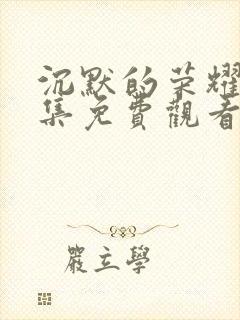 沉默的荣耀
集免費觀看
嚴立學